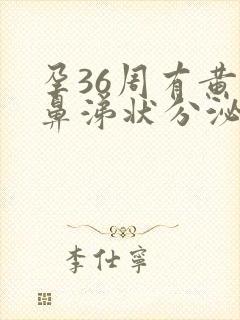 孕36周有黄
鼻涕状分泌
李仕寧